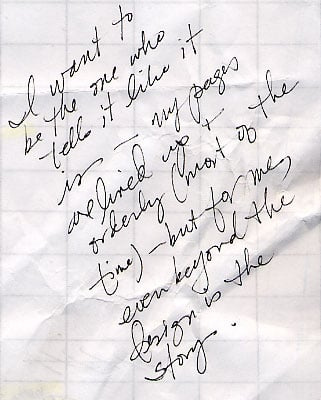 I want to
be the one who
tells it like it
is – my pages
are lined up +
orderly (most of the
time) – but for me,
even beyond the
design is the
story.